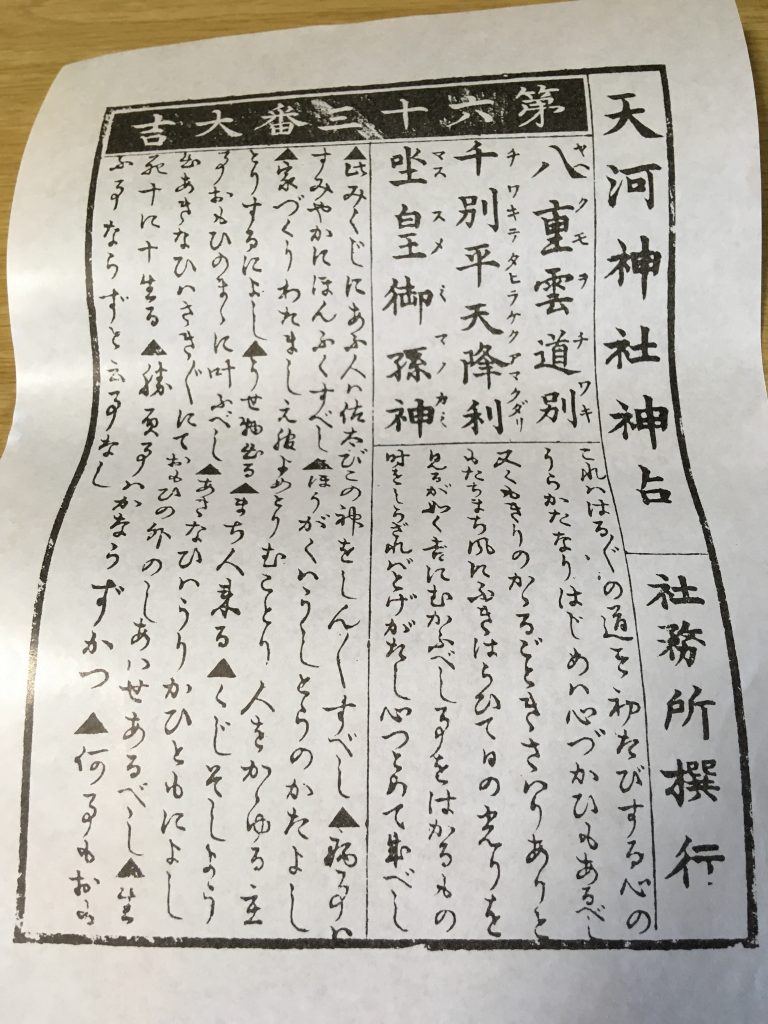 天河神社神占
社務所撰行
第六十三番大吉
八重雲道別
ヤヘクモヲチワキ
千別平天降利
チワキテタヒラケクアマクダリ
坐皇御孫神
マススメミマノカミ
これハはるぐの道を初たびする心の
うらかたなりはじめハ心づかひもあるべし
又くもきりのかゝるごときさハりありと
もたちまち風にふきはらひて日の光りを
見るが如く吉にむかふべし事をはかるもの
時をしらざれバとげがたし心つとめて
べし
▲此みくじにあふ人ハ佐太びこの神をしんぐすべし▲病事ハ
すみやかにほんふくすべし▲ほうがくハうしとらのかたよし
▲家づくりわたまし元服よめとりむことり人をかゝゆる
とりするによし▲うせ物出る▲まち人来る▲くじそしよう
事おもひのまゝに叶ふべし▲あきなひハうりかひともによし
出あきなひハさきぐにておもひの外のしあハせあるべし▲生
死十に十生る▲勝負事ハかならずかつ▲何事もおも
ふ事ならずと云事なし